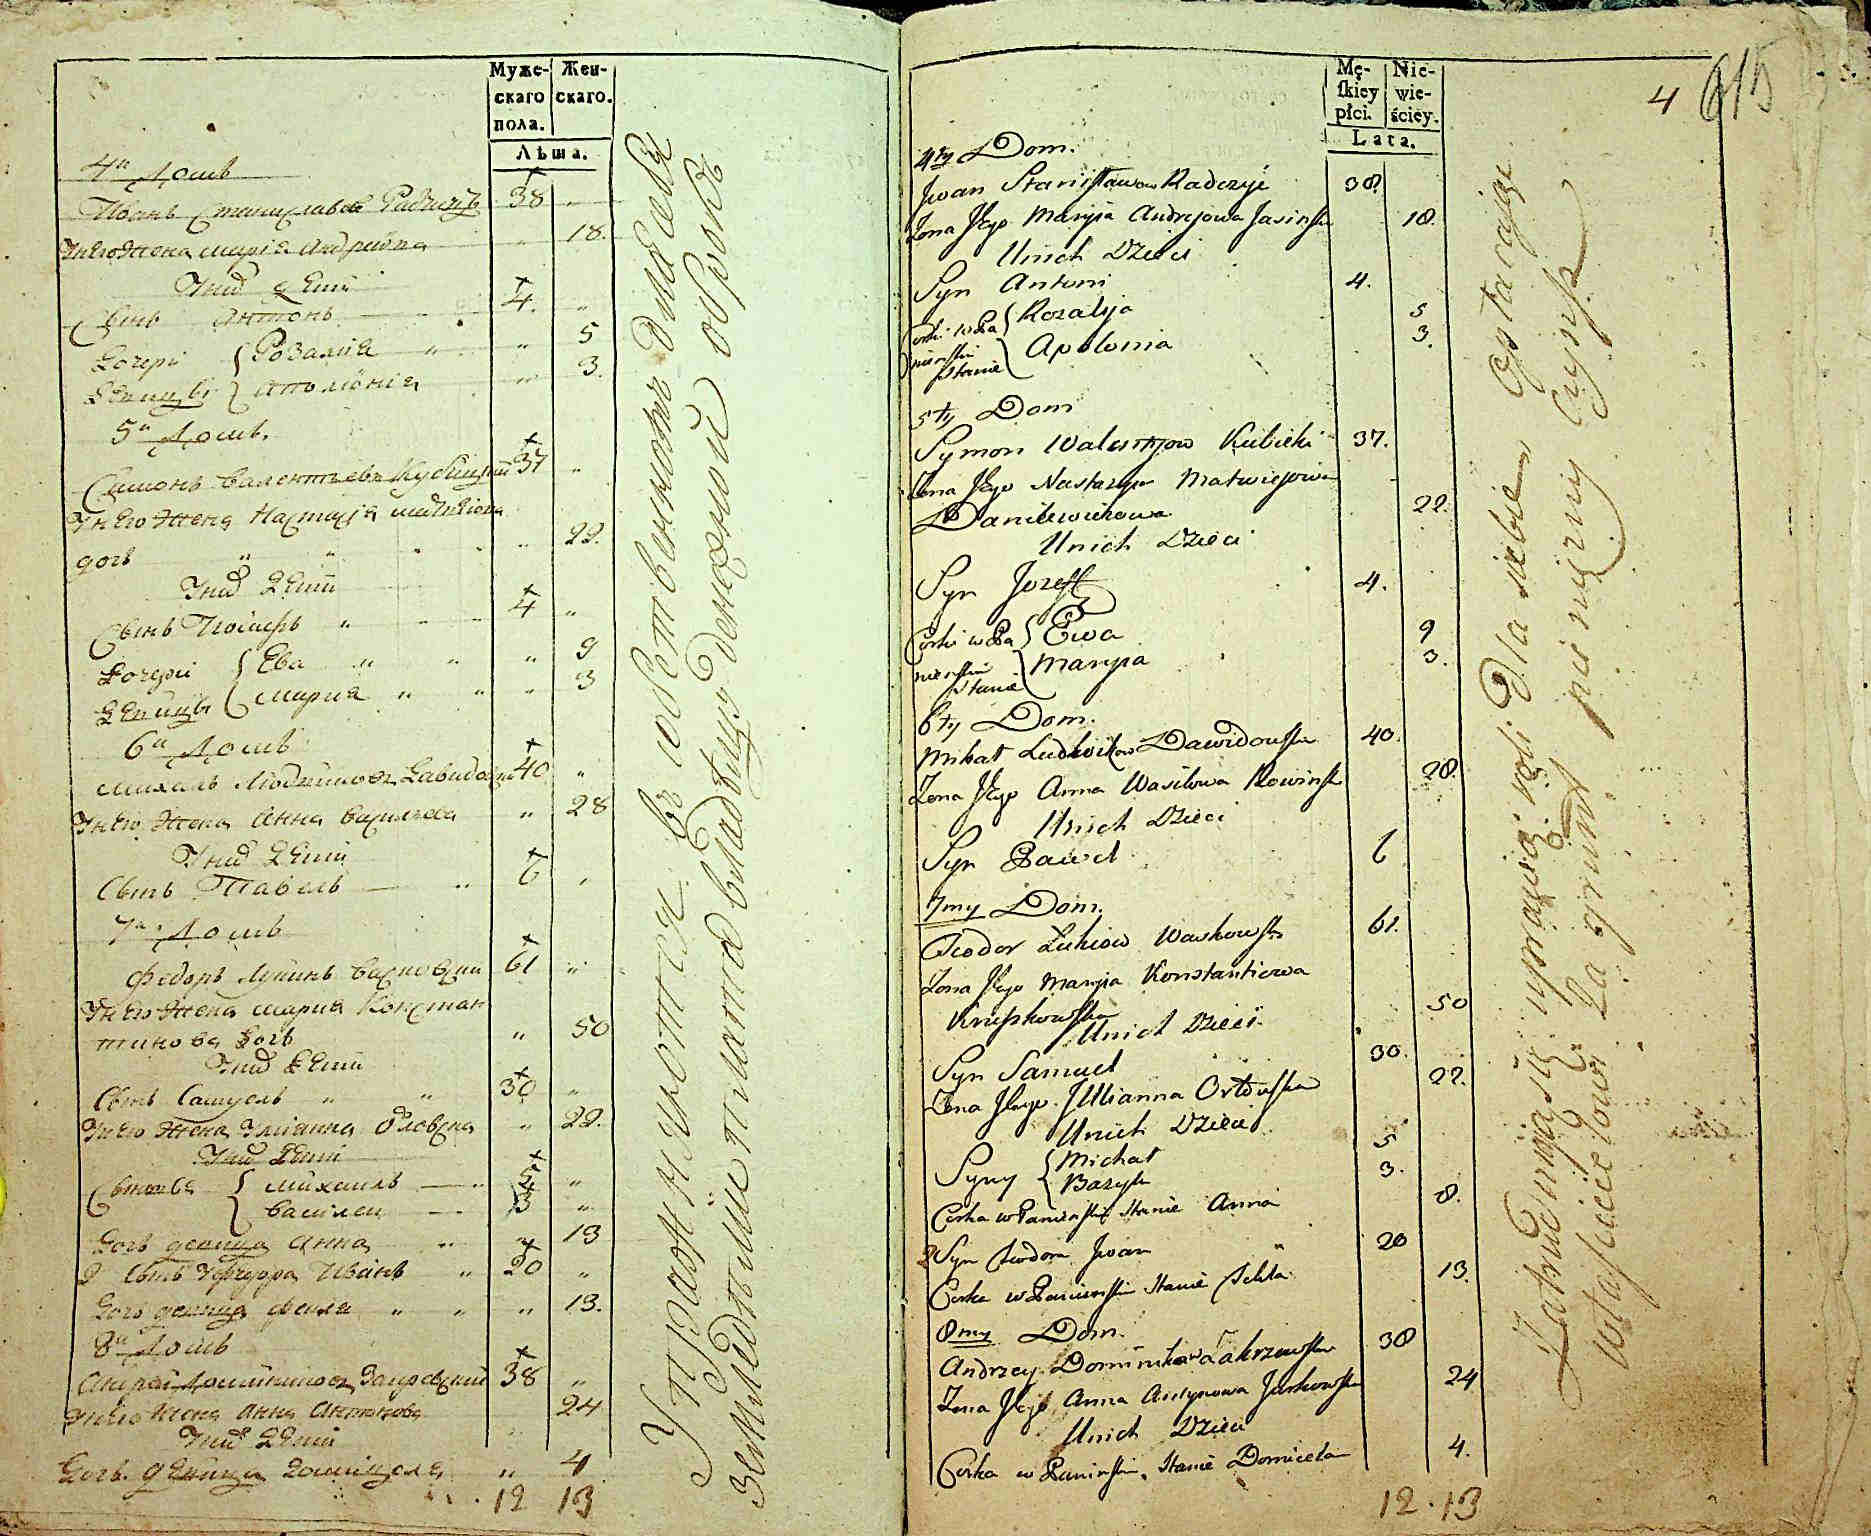 Муже-
скаго
пола.
Жен-
скаго.
Лѣта.
4й Домъ
Иванъ Станиславовъ Радзичъ 38 "
У него Жена Марія Андрѣйва " 18.
У нихъ дѣти
Сынъ Антонъ 4. "
Дочери { Розалія " 5
Дѣвицы { Аполонія " 3.
5й Домъ.
Симонъ Валентьевъ Кубицкій 37 "
У него Жена Настасія Матвѣева
дочь " 22.
У нихъ Дѣти
Сынъ Іосифъ 4 "
Дочери { Ева " 9
Дѣвицы { Марія " 3
6й Домъ
Михалъ Людвиковъ Давидовскій 40 "
У него Жена Анна Васильева " 28
У нихъ Дѣти
Сынъ Павелъ 6 "
7й Домъ
Федоръ Лукинъ Васковскій 61 "
У него Жена Марія Констан
тинова Дочь " 50
У нихъ Дѣти
Сынъ Самуелъ 30 "
У него Жена Уліанна " 22.
У нихъ Дѣти
Сыновья { Михаилъ 5 "
Василей 3 "
Дочь девица Анна " 13
2 Сынъ Ѳеодора Иванъ 20 "
Дочь девица Фекла " 13.
8й Домъ
Андрей Доминиковъ 38 "
У него Жена Анна Антонова 24
У нихъ Дѣти
Дочь Дѣвица Домицеля " 4
12 13
Упражняются въ собственномъ для себя
земледѣліи платя владѣльцу денежный оброкъ
4 615
Mę-
skiey
płci.
Nie-
wie-
ściey.
Lata.
4ty Dom.
Jwan Stanisławow Radczyé 38.
Zona Jego Maryia Andrejowa Jasinsk 18.
Unich Dzieci
Syn Antoni 4.
Corki w Pa { Rozalija 5
nienskim Stanie { Apolonia 3.
5ty Dom
Symon Walentyow Kubicki 37.
Zona Jego Nastazya Matwiejowa
Danilewiczowa 22.
Unich Dzieci
Syn Jozeff 4.
Corki w Pa { Ewa 9
nienskim Stanie { Maryia 3.
6ty Dom.
Michał Ludwikow Dawidowski 40.
Zona Jego Anna Wasilowa Rowinsk 28.
Unich Dzieci
Syn Paweł 6
7my Dom.
Teodor Łukiow Waskowski 61.
Zona Jego Maryia Konstantiowa
Krupkowska 50
Unich Dzieci
Syn Samuel 30.
Zona Jego Julianna Orłowska 22.
Unich Dzieci
Syny { Michał 5
Bazyli 3.
Corka w Panienskim Stanie Anna 8.
2 Syn Teodora Jwan 20
Corka w Panienskim Stanie Tekla 13.
8my Dom.
Andrzey Dominikow Zakrzewski 38
Zona Jego Anna Antonowa Jurkowska 24
Unich Dzieci
Corka w Panienskim Stanie Domicela 4.
12. 13
Zatrudniaią się uprawą roli dla siebie Opłacaiąc
właścicielowi Za grunt pieniężny Czynsz